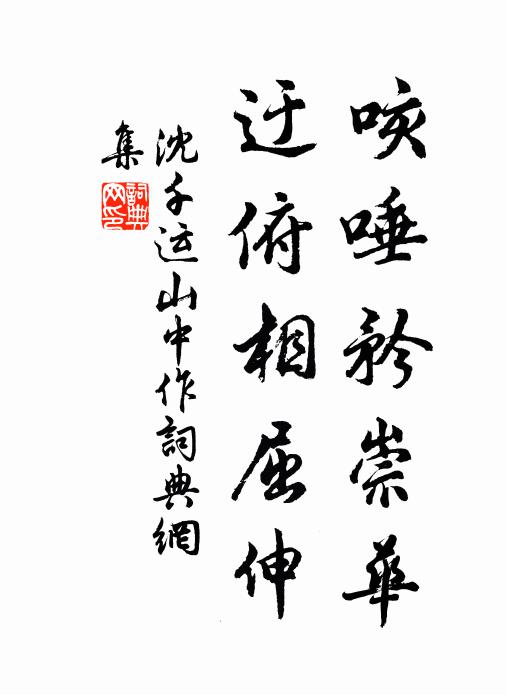 咳唾矜崇華
迂俯相屈伸
沈千运山中作詞典網
集
詞典
网印